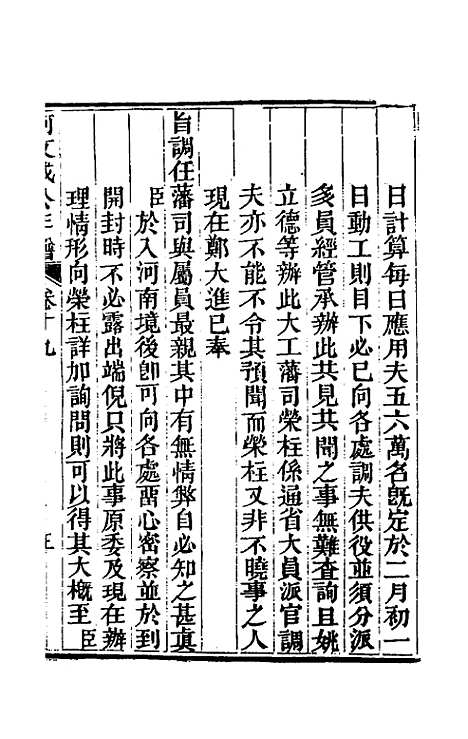 日計算每日應用夫五六萬名旣定於二月初一
日動工則目下必已向各處調夫供役並須分派
多員經管承辦此共見共聞之事無難査詢且姚
立德等辦此大工藩司榮柱係通省大員派官調
夫亦不能不令其預聞而榮柱又非不曉事之人
現在鄭大進已奉
旨調任藩司與屬員最親其中有無情弊自必知之甚眞
臣於入河南境後卽可向各處留心密察並於到
開封時不必露出端倪只將此事原委及現在辦
理情形向榮柱詳加詢問則可以得其大概至臣
阿文成公年譜 卷十九 五